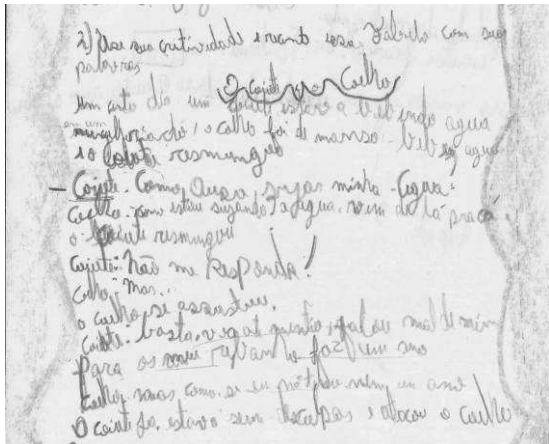 2) Use sua criatividade e reconte essa Fabula com suas
palavras
O coiote e o Coelho
um certo dia um coiote estava bebendo agua
em um
o coelho foi de manso beber agua
e o coiote resmungou
- Coiote. Como, Ousa, sujar minha agua?
Coelho. como estou sujando? a agua. vem de lá pra cá.
o coiote resmungou
coiote: Não me Responda!
coelho: Mas...
o coelho se assustou.
coiote: basta, falou mal de mim
Para os meu faz um ano
Coelho. mas, como. se eu nem um ano
O coiote ja. estava sem desculpas e atacou o coelho